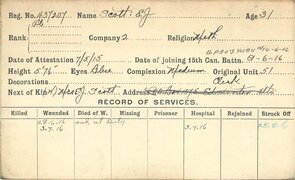 Reg. No. 437207 Name Scott S.J. Age 31
Rank Pte. Company 2 Religion Meth
D.P.S 14-6-16
Date of Attestation 7/5/15 Date of joining 15th Can. Battn. 9-6-16
Height 5'7½ Eyes Blue Complexion Medium Original Unit 51
Decorations Clerk
Next of Kin Scott Address Edmonton Alta
RECORD OF SERVICES.
Killed Wounded Died of W. Missing Prisoner Hospital Rejoined Struck Off
28-6-16 Duty 3.7.16 25.8.16
3.7.16